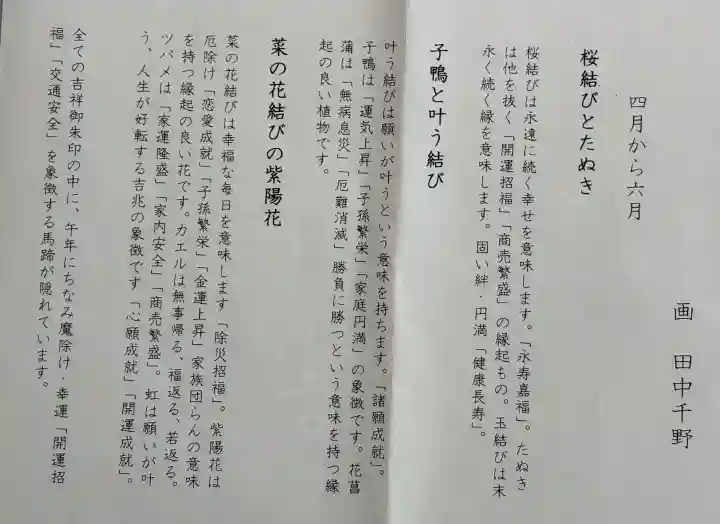 四月から六月
画 田中千野
桜結びとたぬき
桜結びは永遠に続く幸せを意味します。「永寿嘉福」。たぬき
は他を抜く「開運招福」「商売繁盛」の縁起もの。玉結びは末
永く続く縁を意味します。固い絆・円満「健康長寿」。
子鴨と叶う結び
叶う結びは願いが叶うという意味を持ちます。「諸願成就」。
子鴨は「運気上昇」「子孫繁栄」「家庭円満」の象徴です。花菖
蒲は「無病息災」「厄難消滅」勝負に勝つという意味を持つ縁
起の良い植物です。
菜の花結びの紫陽花
菜の花結びは幸福な毎日を意味します「除災招福」。紫陽花は
厄除け「恋愛成就」「子孫繁栄」「金運上昇」家族団らんの意味
を持つ縁起の良い花です。カエルは無事帰る、福返る、若返る。
ツバメは「家運隆盛」「家内安全」「商売繁盛」。虹は願いが叶
う、人生が好転する吉兆の象徴です「心願成就」「開運成就」。
全ての吉祥御朱印の中に、午年にちなみ魔除け・幸運「開運招
福」「交通安全」を象徴する馬蹄が隠れています。